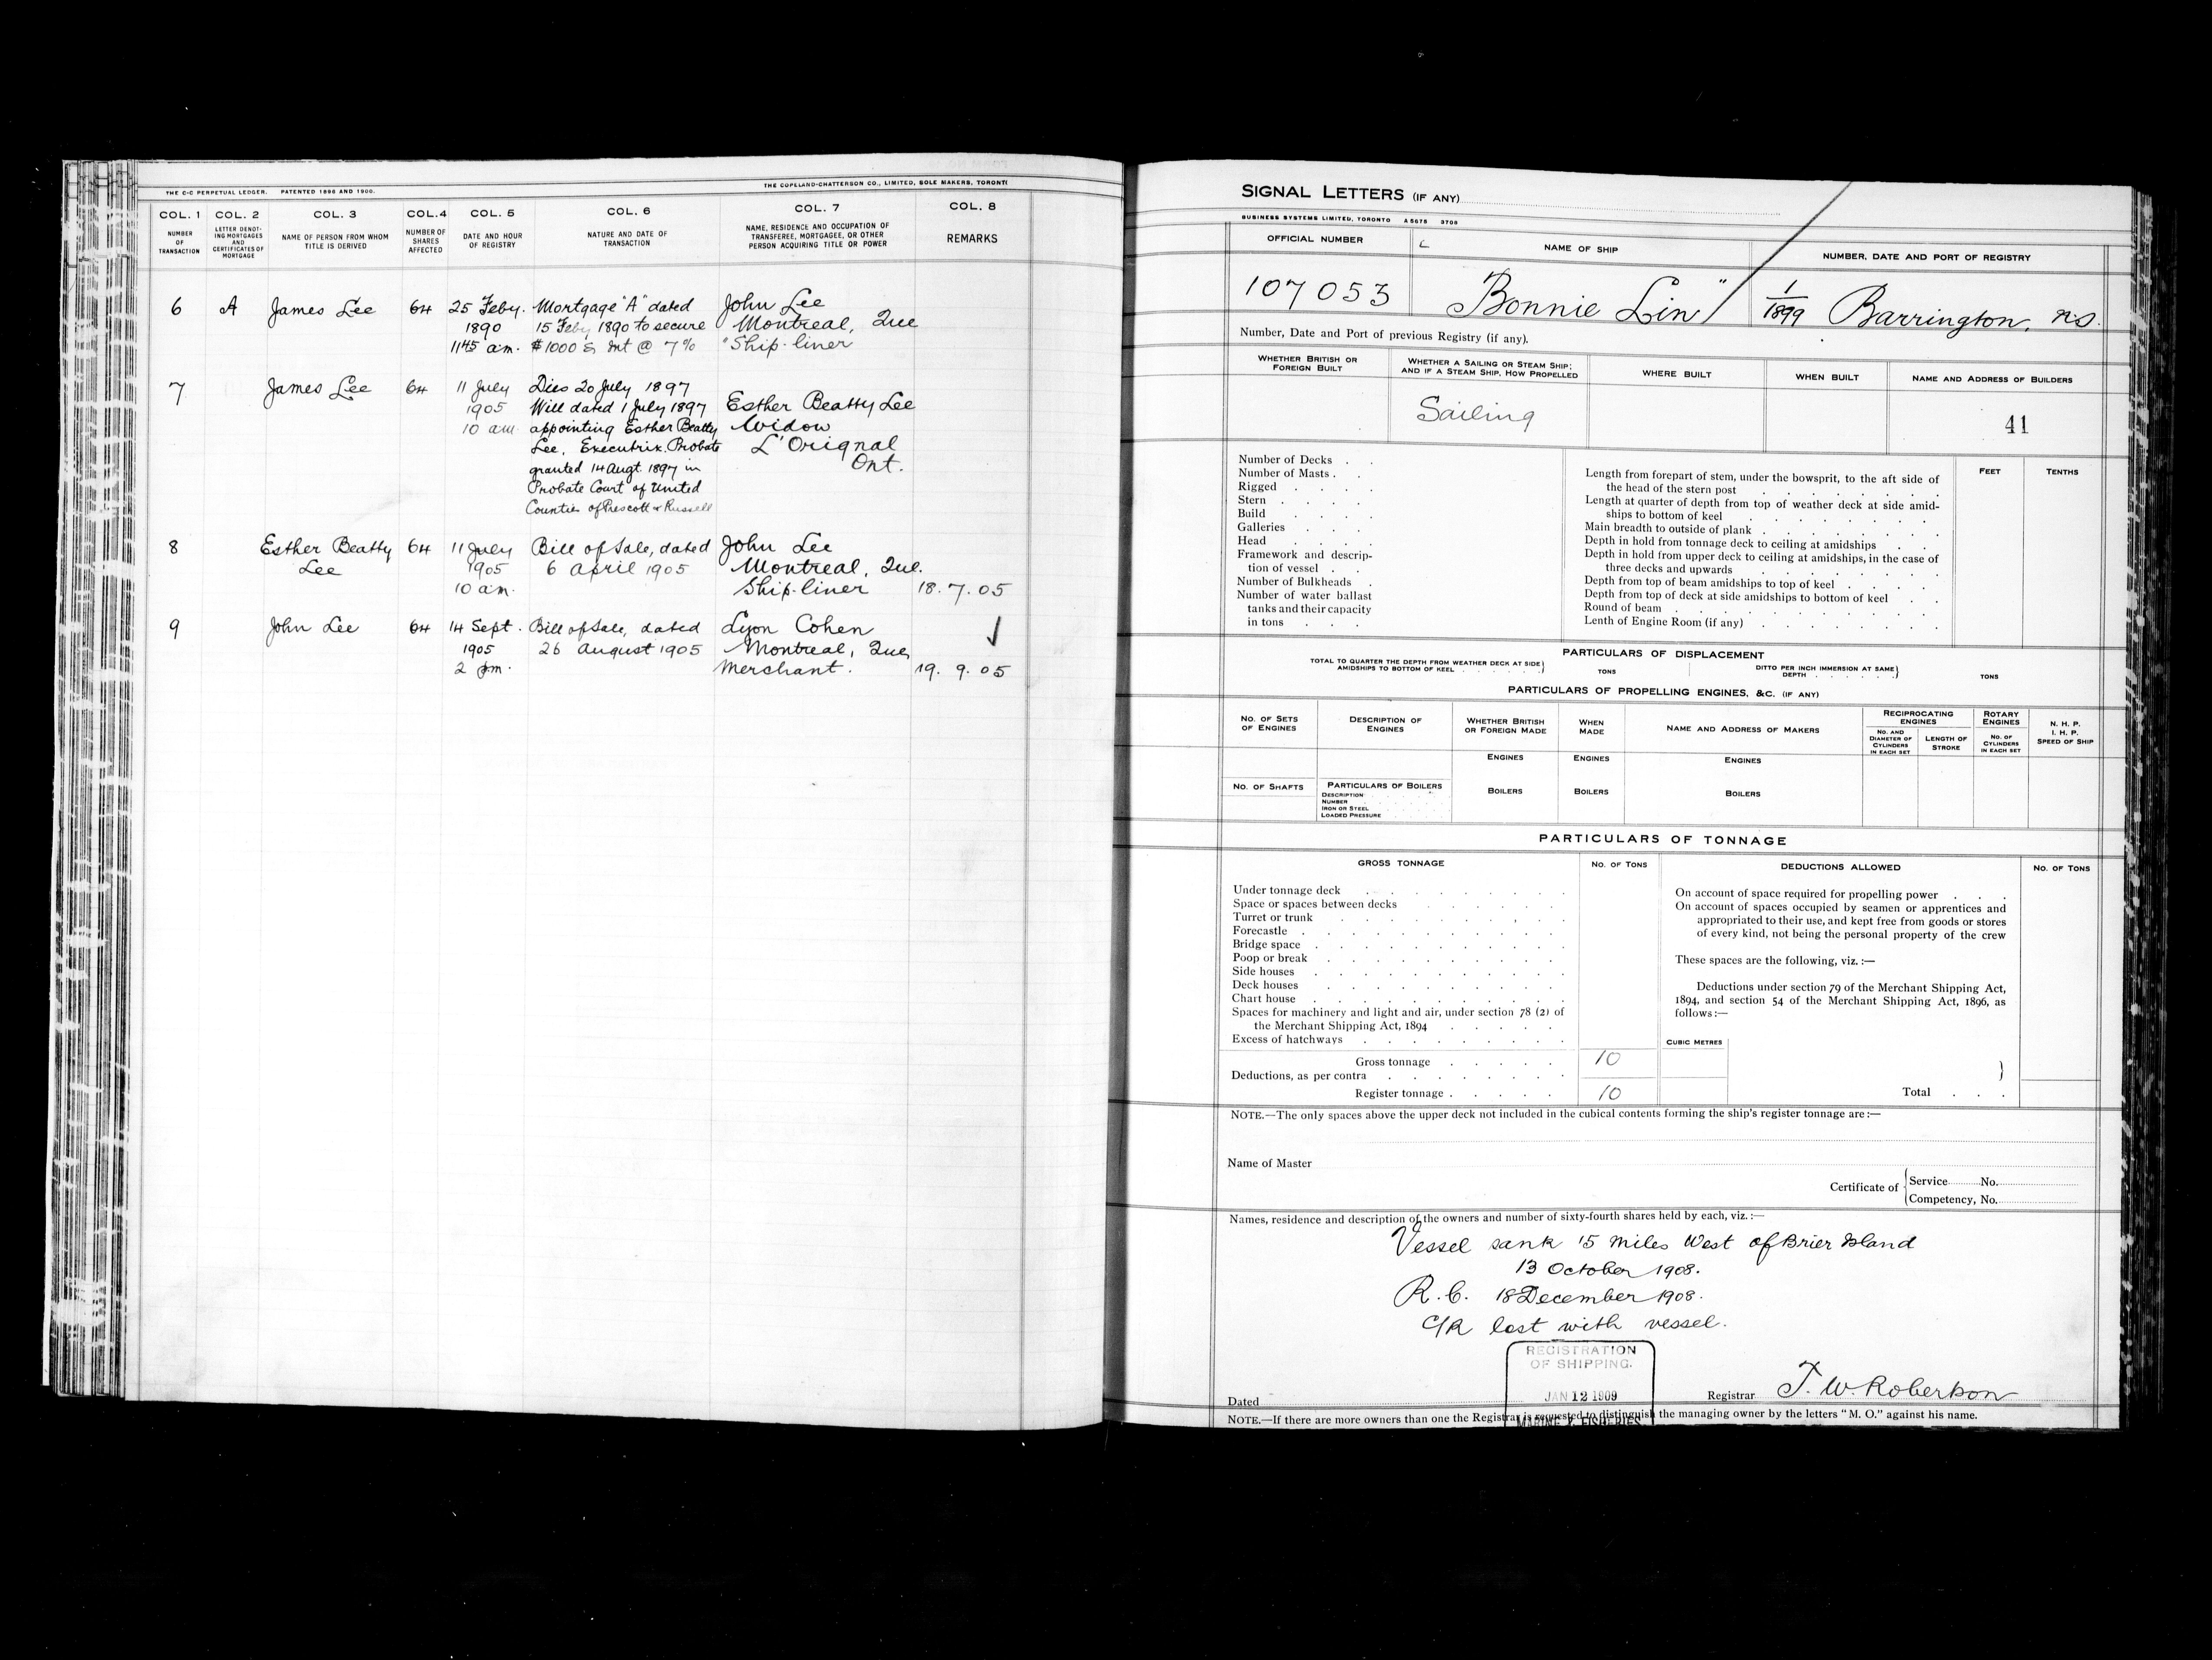 THE C-C PERPETUAL LEDGER. PATENTED 1896 AND 1900.
THE COPELAND-CHATTERSON CO., LIMITED, SOLE MAKERS, TORONTO
COL. 1 COL. 2 COL. 3 COL. 4 COL. 5 COL. 6 COL. 7 COL. 8
NUMBER OF TRANSACTION
LETTER DENOTING MORTGAGES AND CERTIFICATES OF MORTGAGE
NAME OF PERSON FROM WHOM TITLE IS DERIVED
NUMBER OF SHARES AFFECTED
DATE AND HOUR OF REGISTRY
NATURE AND DATE OF TRANSACTION
NAME, RESIDENCE AND OCCUPATION OF TRANSFEREE, MORTGAGEE, OR OTHER PERSON ACQUIRING TITLE OR POWER
REMARKS
6 A James Lee 64 25 Feby. Mortgage "A" dated John Lee
1890 15 Feby 1890 to secure Montreal, Que
1145 a.m. $1000 & Int @ 7% Ship-liner
7 James Lee 64 11 July Dies 20 July 1897
1905 Will dated 1 July 1897 Esther Beatty Lee
10 am appointing Esther Beatty Widow
Lee, Executrix. Probate L'Orignal
granted 14 Augt. 1897 in Ont.
Probate Court of United
Counties of Prescott & Russell
8 Esther Beatty 64 11 July Bill of Sale, dated John Lee
Lee 1905 6 April 1905 Montreal, Que.
10 am. Ship-liner 18.7.05
9 John Lee 64 14 Sept. Bill of Sale, dated Lyon Cohen
1905 26 August 1905 Montreal, Que,
2 pm. Merchant. 19.9.05
SIGNAL LETTERS (IF ANY)
BUSINESS SYSTEMS LIMITED, TORONTO A5675 3708
OFFICIAL NUMBER NAME OF SHIP NUMBER, DATE AND PORT OF REGISTRY
107053 "Bonnie Lin" 1/1899 Barrington, N.S.
Number, Date and Port of previous Registry (if any).
WHETHER BRITISH OR FOREIGN BUILT
WHETHER A SAILING OR STEAM SHIP; AND IF A STEAM SHIP, HOW PROPELLED
WHERE BUILT
WHEN BUILT
NAME AND ADDRESS OF BUILDERS
Sailing 41
Number of Decks
Number of Masts
Rigged
Stern
Build
Galleries
Head
Framework and descrip-
tion of vessel
Number of Bulkheads
Number of water ballast
tanks and their capacity
in tons
FEET TENTHS
Length from forepart of stem, under the bowsprit, to the aft side of
the head of the stern post
Length at quarter of depth from top of weather deck at side amid-
ships to bottom of keel
Main breadth to outside of plank
Depth in hold from tonnage deck to ceiling at amidships
Depth in hold from upper deck to ceiling at amidships, in the case of
three decks and upwards
Depth from top of beam amidships to top of keel
Depth from top of deck at side amidships to bottom of keel
Round of beam
Lenth of Engine Room (if any)
PARTICULARS OF DISPLACEMENT
TOTAL TO QUARTER THE DEPTH FROM WEATHER DECK AT SIDE AMIDSHIPS TO BOTTOM OF KEEL TONS
DITTO PER INCH IMMERSION AT SAME DEPTH TONS
PARTICULARS OF PROPELLING ENGINES, &C. (IF ANY)
NO. OF SETS OF ENGINES
DESCRIPTION OF ENGINES
WHETHER BRITISH OR FOREIGN MADE
WHEN MADE
NAME AND ADDRESS OF MAKERS
RECIPROCATING ENGINES
NO. AND DIAMETER OF CYLINDERS IN EACH SET
LENGTH OF STROKE
ROTARY ENGINES
NO. OF CYLINDERS IN EACH SET
N. H. P.
I. H. P.
SPEED OF SHIP
ENGINES ENGINES ENGINES
NO. OF SHAFTS
PARTICULARS OF BOILERS
DESCRIPTION
NUMBER
IRON OR STEEL
LOADED PRESSURE
BOILERS BOILERS BOILERS
PARTICULARS OF TONNAGE
GROSS TONNAGE NO. OF TONS DEDUCTIONS ALLOWED NO. OF TONS
Under tonnage deck
Space or spaces between decks
Turret or trunk
Forecastle
Bridge space
Poop or break
Side houses
Deck houses
Chart house
Spaces for machinery and light and air, under section 78 (2) of
the Merchant Shipping Act, 1894
Excess of hatchways
Gross tonnage 10
Deductions, as per contra
Register tonnage 10
On account of space required for propelling power
On account of spaces occupied by seamen or apprentices and
appropriated to their use, and kept free from goods or stores
of every kind, not being the personal property of the crew
These spaces are the following, viz. :—
Deductions under section 79 of the Merchant Shipping Act,
1894, and section 54 of the Merchant Shipping Act, 1896, as
follows:—
CUBIC METRES
Total
NOTE.—The only spaces above the upper deck not included in the cubical contents forming the ship's register tonnage are :—
Name of Master
Certificate of
Service No.
Competency, No.
Names, residence and description of the owners and number of sixty-fourth shares held by each, viz. :—
Vessel sank 15 miles West of Brier Island
13 October 1908.
R.C. 18 December 1908.
C/R lost with vessel.
REGISTRATION
OF SHIPPING.
JAN 12 1909
MARINE & FISHERIES
Dated
Registrar T. W. Robertson
NOTE.—If there are more owners than one the Registrar is requested to distinguish the managing owner by the letters "M. O." against his name.